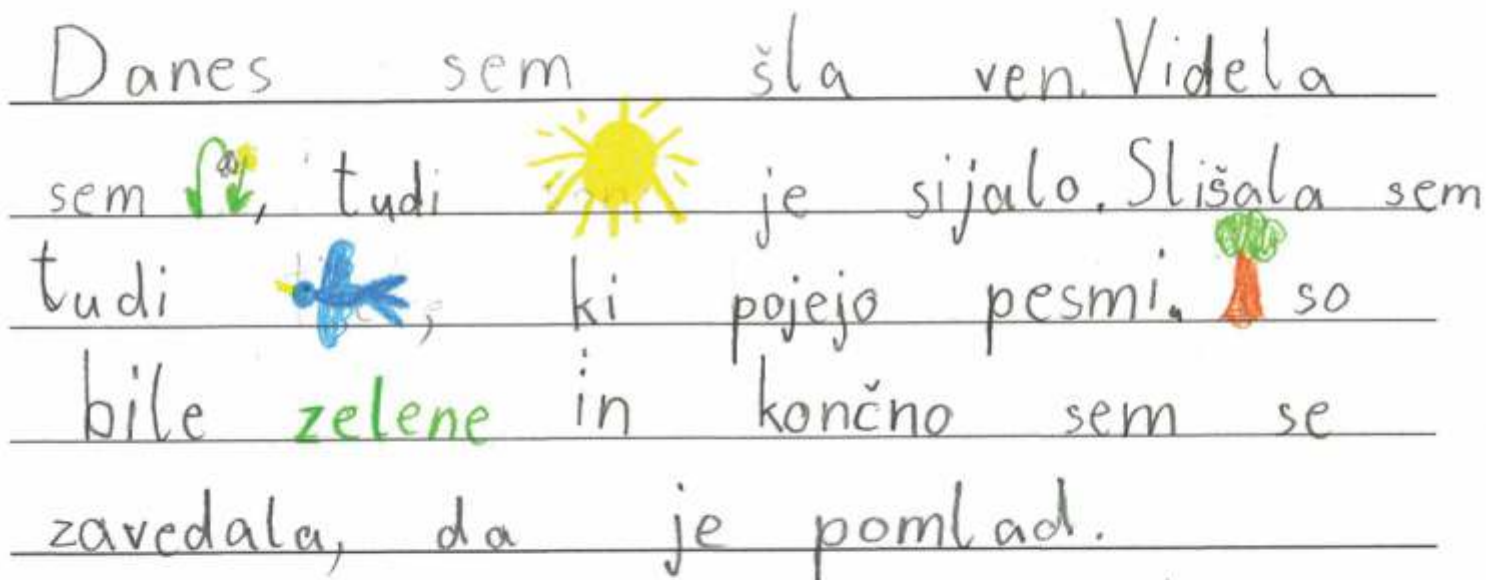 Danes sem šla ven. Videla
sem , tudi je sijalo. Slišala sem
tudi , ki pojejo pesmi. so
bile zelene in končno sem se
zavedala, da je pomlad.